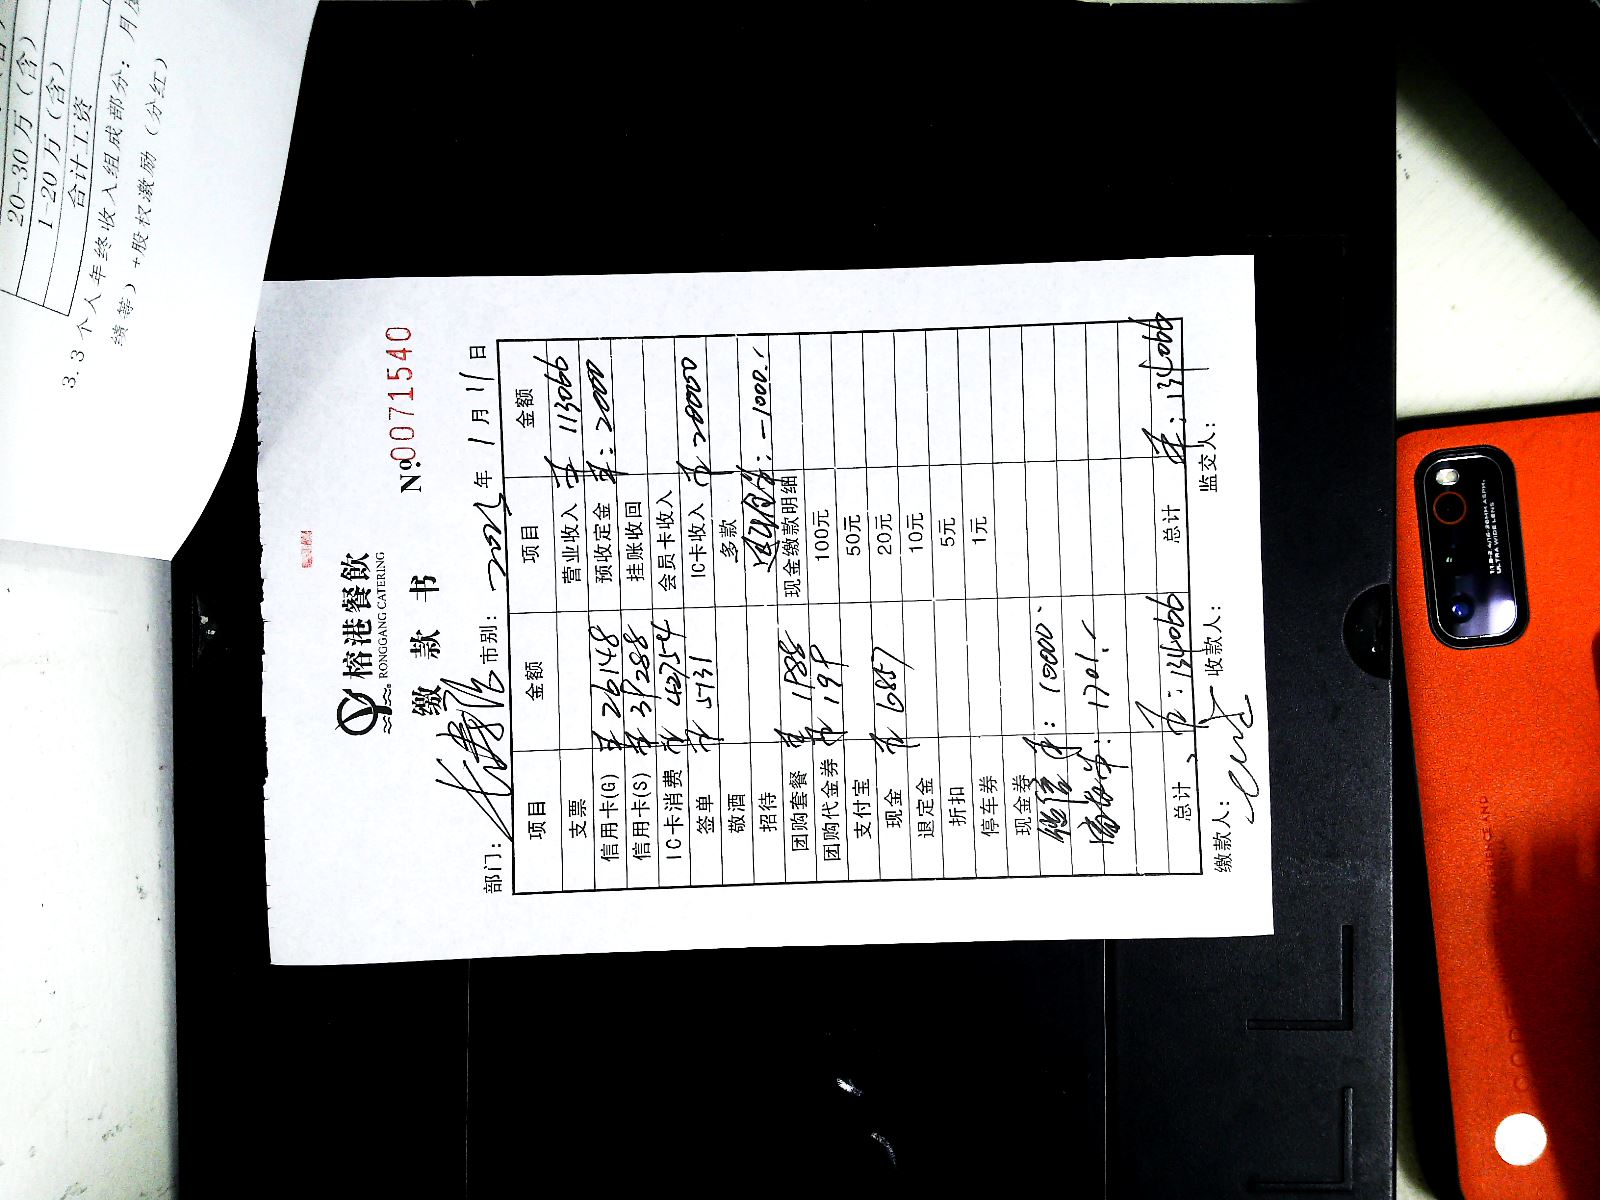 20-30万(含)
1-20万(含)
合计工资
3.3 个人年终收入组成部分：月
绩等）+股权激励（分红）
榕港餐飲
RONGGANG CATERING
缴 款 书
№0071540
部门：
市别：
年 1月11日
项目 金额 项目 金额
支票 营业收入 113066
信用卡(G) 26148 预收定金 2000
信用卡(S) 39288 挂账收回
IC卡消费 42754 会员卡收入
签单 5131 IC卡收入 20000
敬酒 多款
招待 -1000.
团购套餐 1988 现金缴款明细
团购代金券 199 100元
支付宝 50元
现金 6857 20元
退定金 10元
折扣 5元
停车券 1元
现金券
微信 10000.
1701.
总计 134066 总计 134066
缴款人： 收款人： 监交人：
ULTRA WIDE LENS